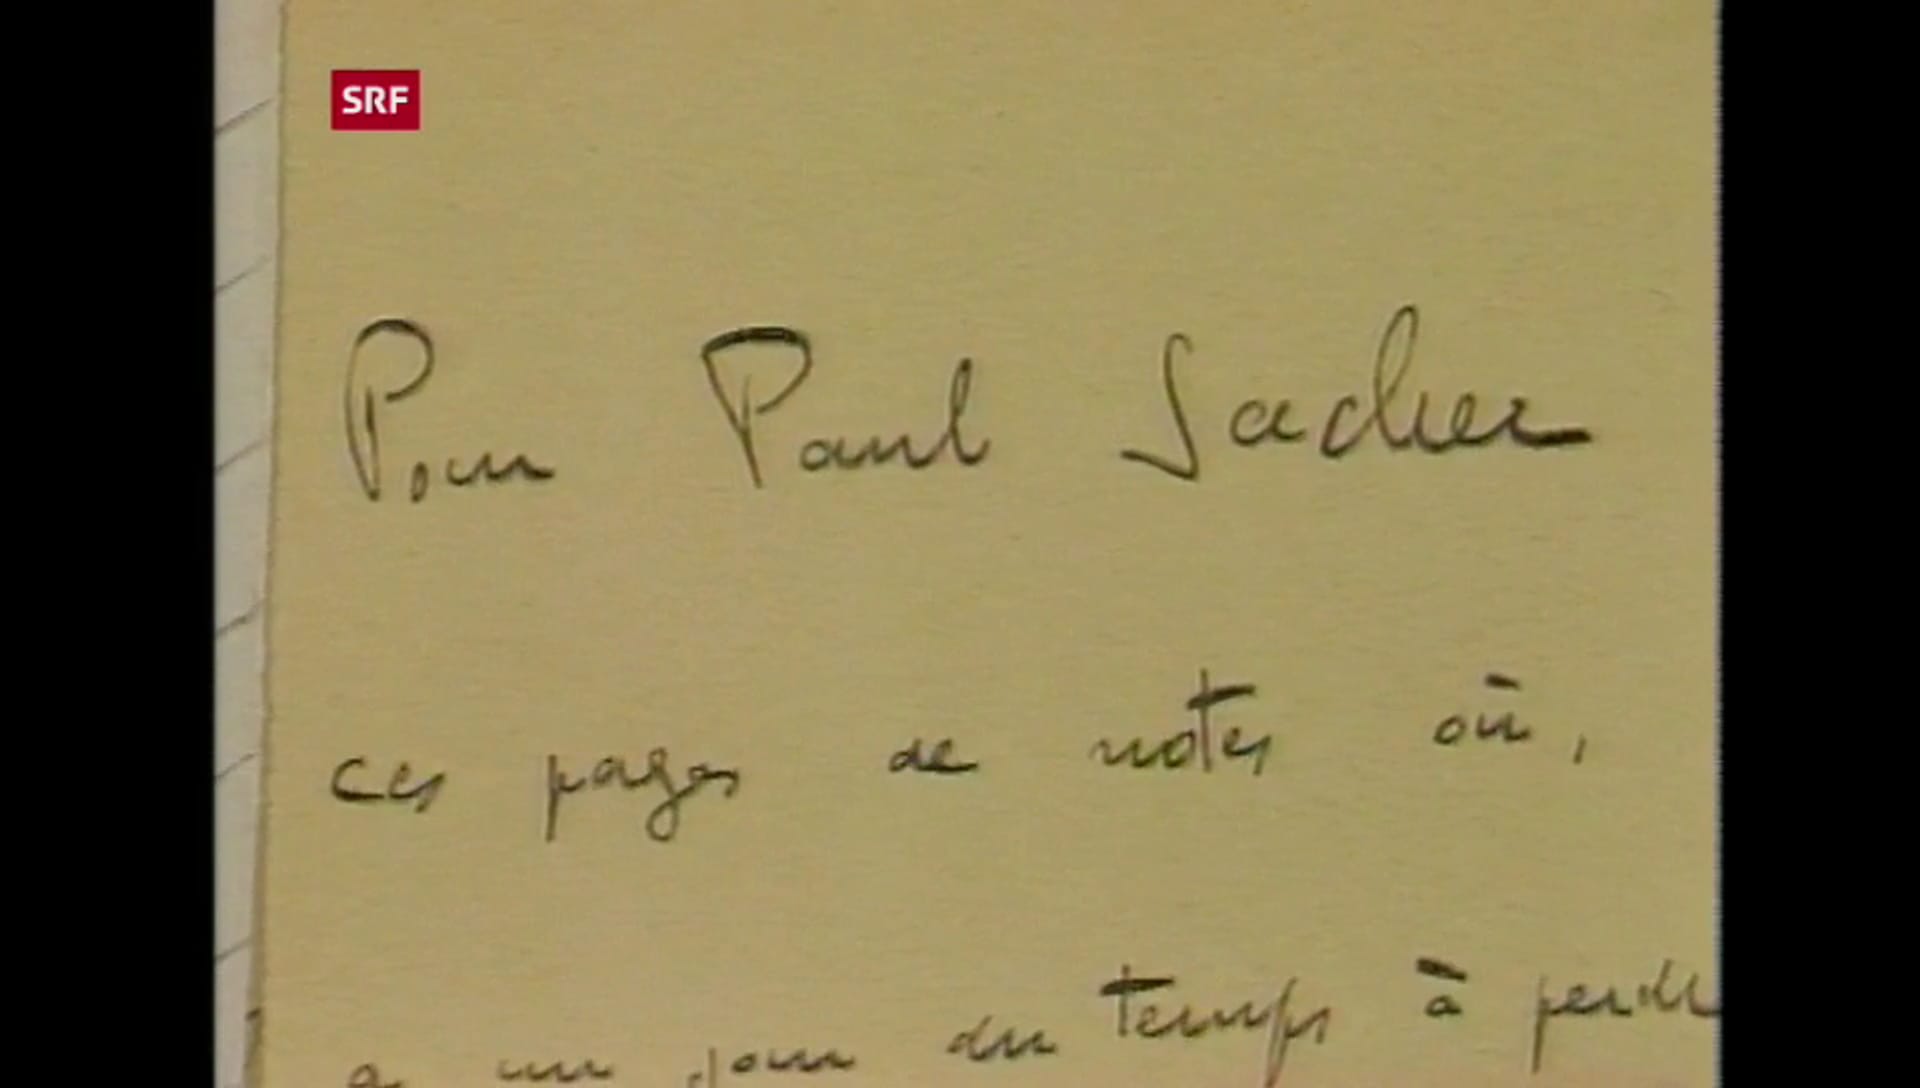 SRF
Pour Paul Sacher
ces pages de notes où,
un jour du temps à perdre